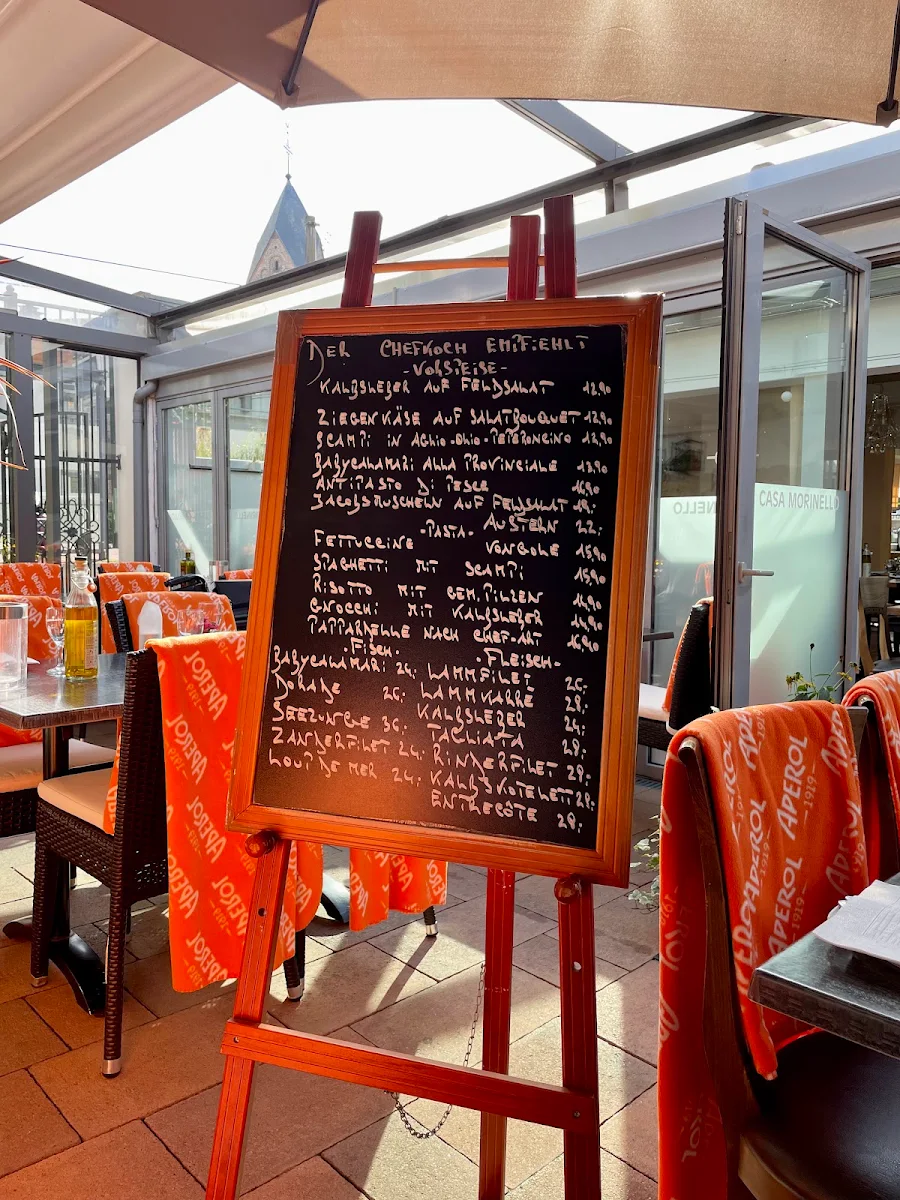 DER CHEFKOCH EMPFIEHLT
-VORSPEISE-
KALBSLEBER AUF FELDSALAT 12,90
ZIEGENKÄSE AUF SALATBOUQUET 12,90
SCAMPI IN AGHIO-OHIO-PEPERONCINO 12,90
BABYCALAMARI ALLA PROVINCIALE 13,90
ANTIPASTO DI PESCE 16,90
JACOBSMUSCHELN AUF FELDSALAT 19,-
AUSTERN 22,-
-PASTA-
FETTUCCINE VONGOLE 15,90
SPAGHETTI MIT SCAMPI 15,90
RISOTTO MIT GEM.PILZEN 14,90
GNOCCHI MIT KALBSLEBER 14,90
PAPPARDELLE NACH CHEF-ART 16,90
-FISCH- -FLEISCH-
BABYCALAMARI 24,- LAMMFILET 26,-
DORADE 26,- LAMMKARRE 28,-
SEEZUNGE 36,- KALBSLEBER 24,-
ZANDERFILET 24,- TAGLIATA 28,-
LOUP DE MER 24,- RINDERFILET 29,-
KALBSKOTELETT 28,-
ENTRECÔTE 28,-
CASA MORINELLO
NELLO
APEROL
1919
APEROL
APEROL
APEROL
APEROL
APEROL
1919
APEROL
1919